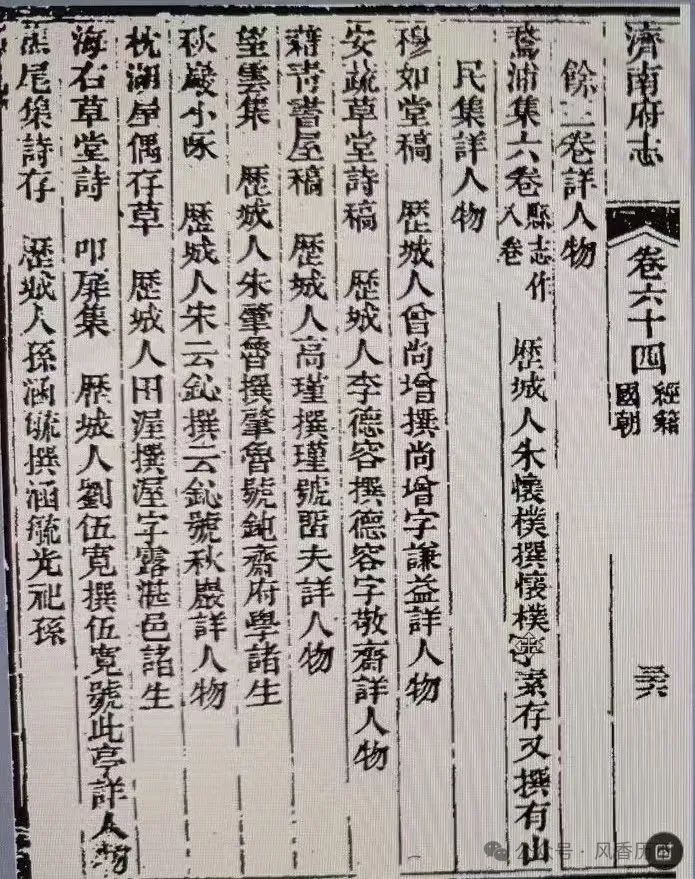 濟南府志 卷六十四 經籍 國朝 三六
餘二卷詳人物
鵞浦集六卷 縣志作八卷 歷城人朱懷樸撰懷樸字素存又撰有山
民集詳人物
穆如堂稿 歷城人曾尚增撰尚增字謙益詳人物
安蔬草堂詩稿 歷城人李德容撰德容字敬齋詳人物
藉靑書屋稿 歷城人高瑾撰瑾號 夫詳人物
望雲集 歷城人朱肇魯撰肇魯號鈍齋府學諸生
秋巖小咏 歷城人宋云鈊撰云鈊號秋巖詳人物
枕湖屋偶存草 歷城人田渥撰渥字露湛邑諸生
海右草堂詩 叩扉集 歷城人劉伍寬撰伍寬號此亭詳人物
黑尾集詩存 歷城人孫涵毓撰涵毓光祀孫
公众号 · 风香历